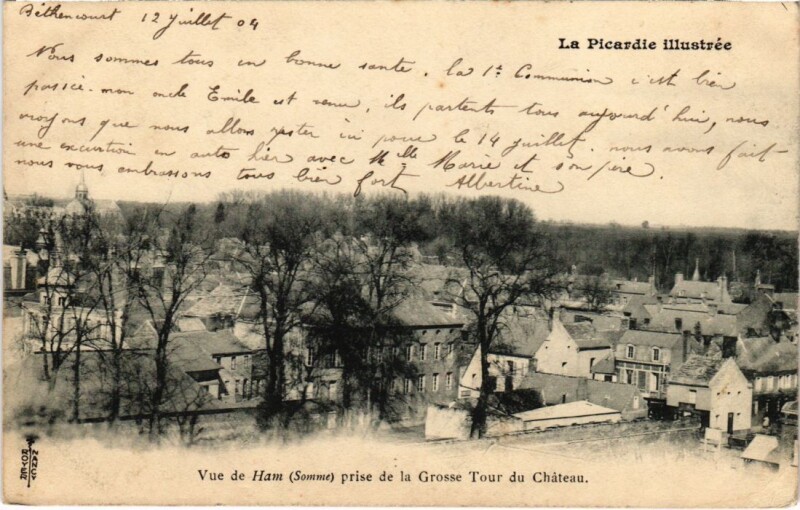 Béthencourt 12 Juillet 04
La Picardie illustrée
Nous sommes tous en bonne santé. la 1e Communion c'est bien
passée. mon oncle Emile est venu, ils partents tous aujourd'hui, nous
croyons que nous allons rester ici pour le 14 juillet. nous avons fait
une excurtion en auto hier avec Melle Marie et son père.
nous vous embrassons tous bien fort Albertine
ROYER NANCY
Vue de Ham (Somme) prise de la Grosse Tour du Château.